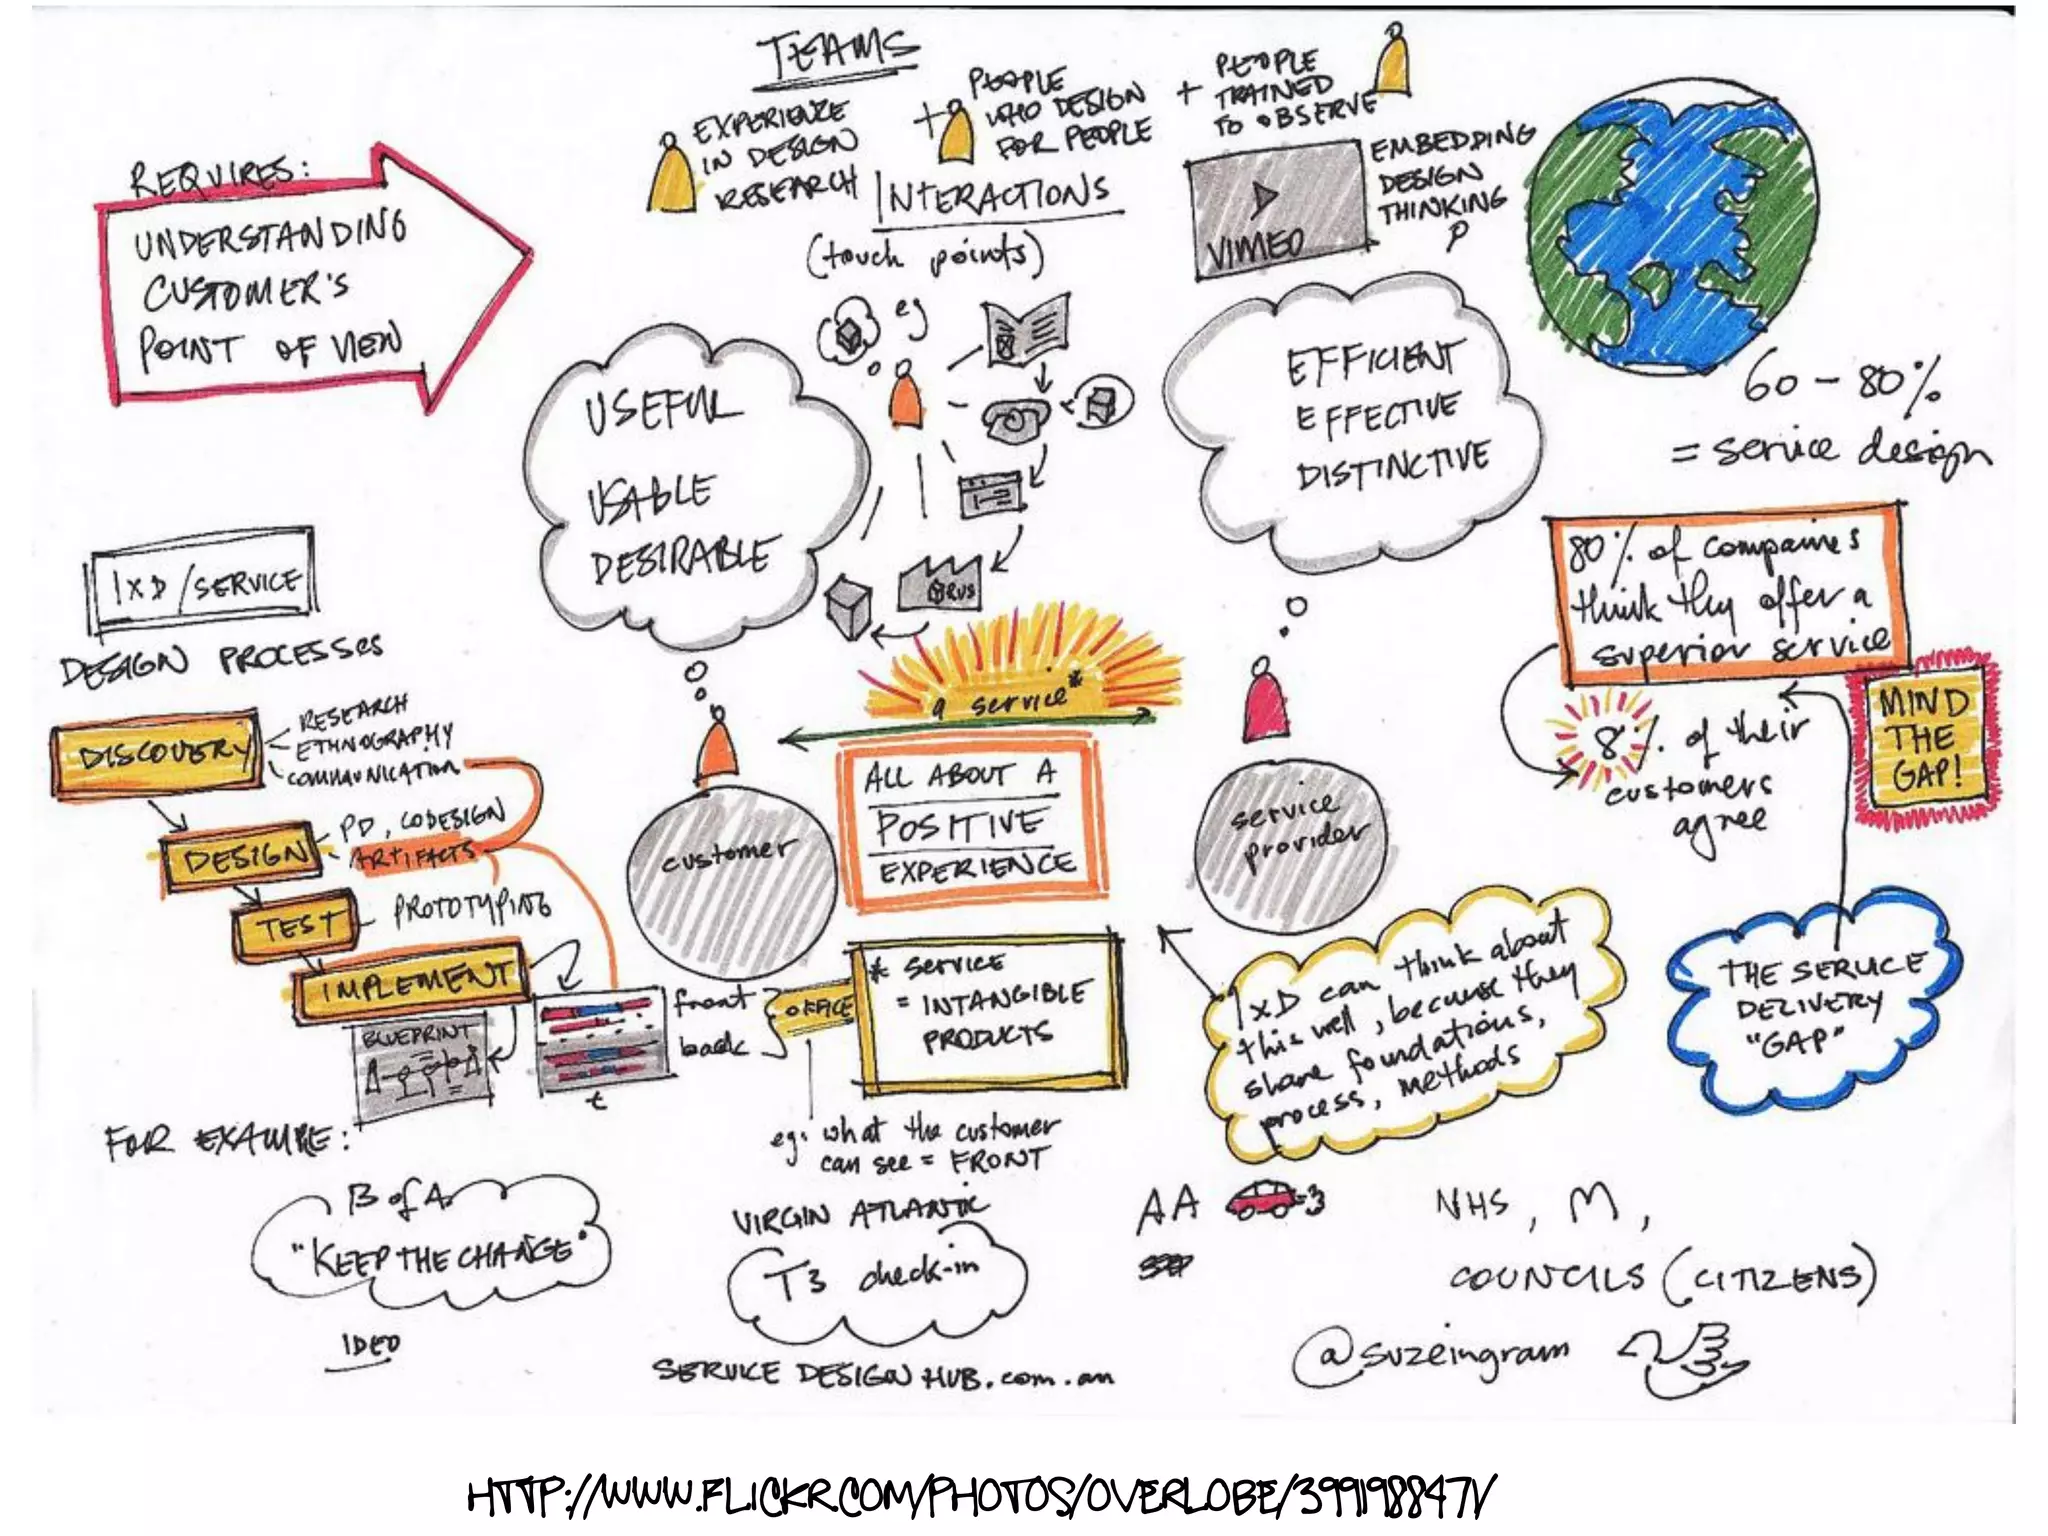 TEAMS
EXPERIENCE
IN DESIGN
RESEARCH
+
PEOPLE
WHO DESIGN
FOR PEOPLE
+
PEOPLE
TRAINED
TO OBSERVE
VIMEO
EMBEDDING
DESIGN
THINKING
REQUIRES:
UNDERSTANDING
CUSTOMER'S
POINT OF VIEW
INTERACTIONS
(touch points)
eg
USEFUL
USABLE
DESIRABLE
EFFICIENT
EFFECTIVE
DISTINCTIVE
60-80%
= service design
80% of companies
think they offer a
superior service
MIND
THE
GAP!
8% of their
customers
agree
THE SERVICE
DELIVERY
"GAP"
IXD/SERVICE
DESIGN PROCESSES
DISCOVERY
RESEARCH
ETHNOGRAPHY
COMMUNICATION
DESIGN
PD, CODESIGN
ARTIFACTS
TEST
PROTOTYPING
IMPLEMENT
BLUEPRINT
t
front
back
OFFICE
a service*
ALL ABOUT A
POSITIVE
EXPERIENCE
customer
service
provider
* SERVICE
= INTANGIBLE
PRODUCTS
eg: what the customer
can see = FRONT
IxD can think about
this well, because they
share foundations,
process, methods
FOR EXAMPLE:
B of A
"KEEP THE CHANGE"
IDEO
VIRGIN ATLANTIC
T3 check-in
AA
NHS, M,
COUNCILS (CITIZENS)
@suzeingram
SERVICE DESIGN HUB.com.au
HTTP://WWW.FLICKR.COM/PHOTOS/OVERLOBE/3991988471/